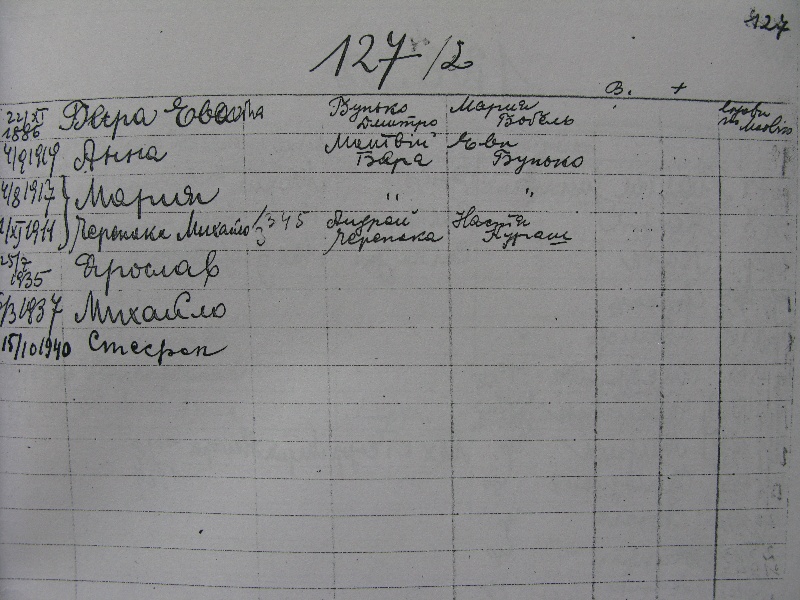 127
127/2
В. +
22/XI 1886 Бара Ева вдова Вунько Дмитро Мария Бобель
4/9 1919 Анна Матвій Бара Ева Вунько
4/8 1917 Мария " "
1/XI 1911 Черепака Михайло 1/3 345 Андрей Черепака Настя Кураш
25/7 1935 Ярослав
1937 Михайло
15/10 1940 Стефан